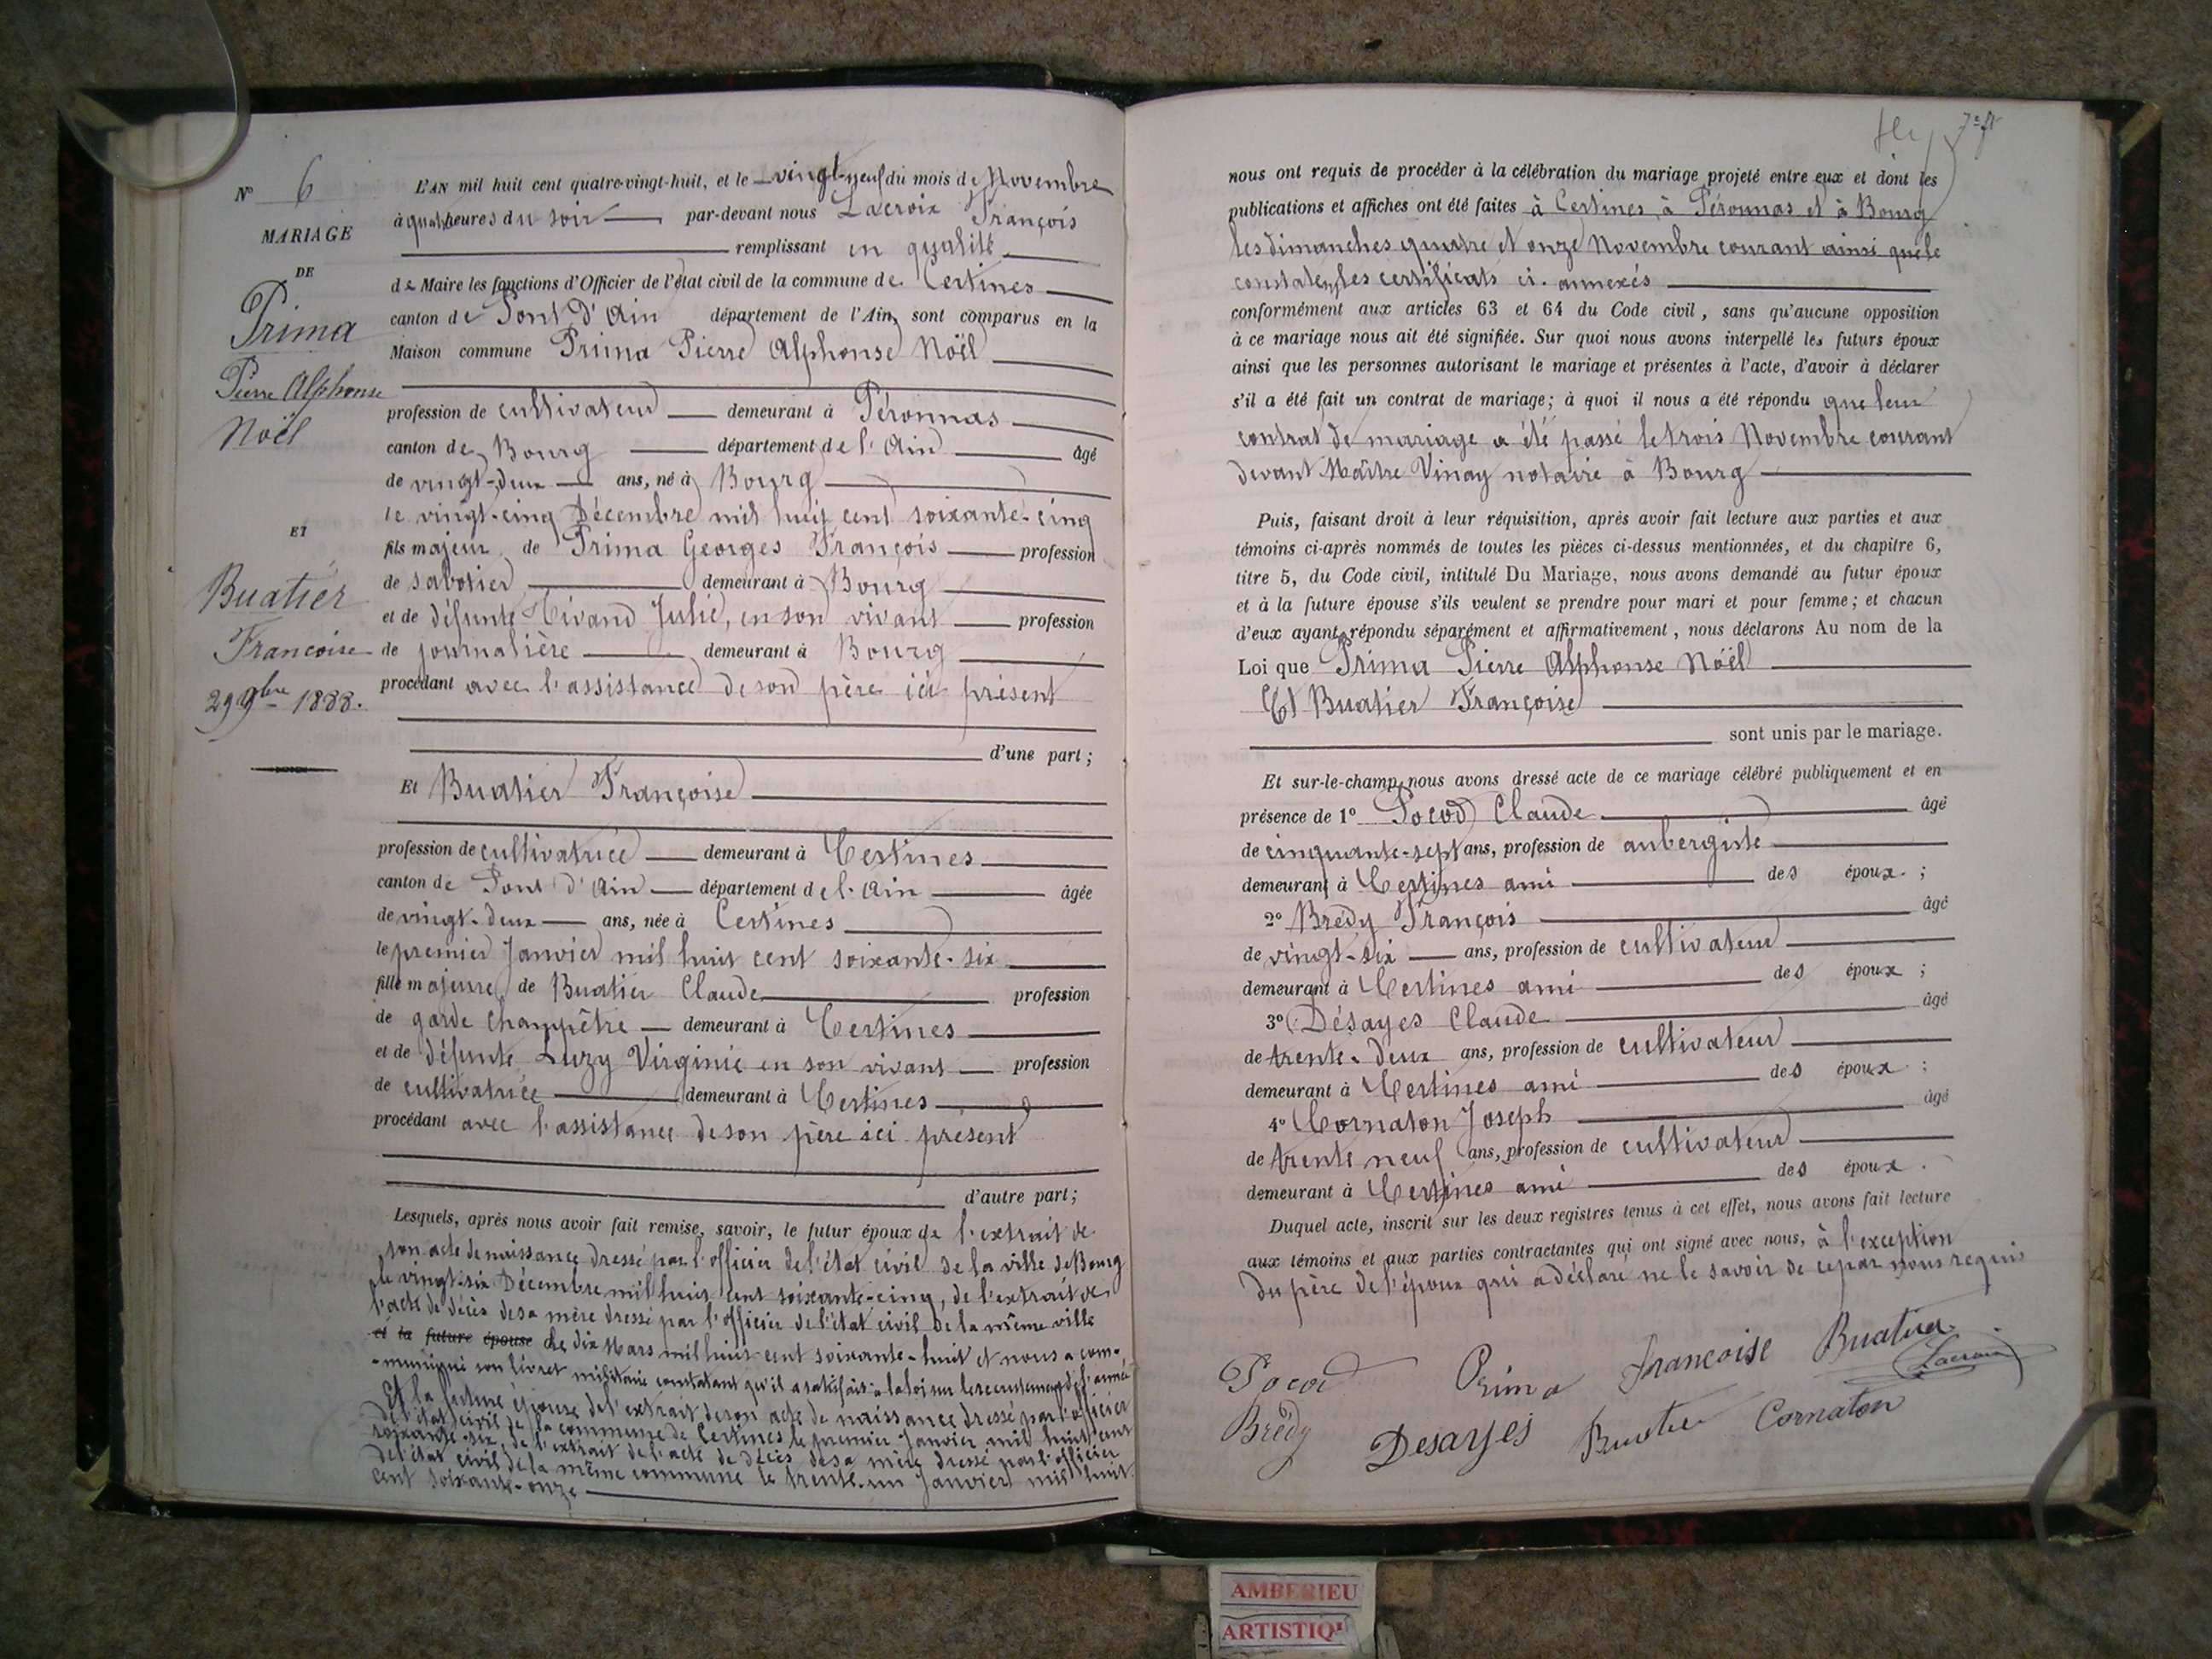 N° 6
MARIAGE
DE
Prima
Pierre Alphonse
Noël
ET
Buatier
Francoise
29 9bre 1888.
L'AN mil huit cent quatre-vingt-huit, et le vingt-neuf du mois de Novembre
à quatre heures du soir par-devant nous Lacroix François
remplissant en qualité
de Maire les fonctions d'Officier de l'état civil de la commune de Certines
canton de Pont d'Ain département de l'Ain, sont comparus en la
Maison commune Prima Pierre Alphonse Noël
profession de cultivateur demeurant à Péronnas
canton de Bourg département de l'Ain âgé
de vingt-deux ans, né à Bourg
le vingt-cinq Décembre mil huit cent soixante-cinq
fils majeur de Prima Georges François profession
de sabotier demeurant à Bourg
et de défunte Julie, en son vivant profession
de journalière demeurant à Bourg
procédant avec l'assistance de son père ici présent
d'une part;
Et Buatier Françoise
profession de cultivatrice demeurant à Certines
canton de Pont d'Ain département de l'Ain âgée
de vingt-deux ans, née à Certines
le premier Janvier mil huit cent soixante-six
fille majeure de Buatier Claude profession
de garde champêtre demeurant à Certines
et de défunte Luzy Virginie en son vivant profession
de cultivatrice demeurant à Certines
procédant avec l'assistance de son père ici présent
d'autre part;
Lesquels, après nous avoir fait remise, savoir, le futur époux de l'extrait de
son acte de naissance dressé par l'officier de l'état civil de la ville de Bourg
le vingt-six Décembre mil huit cent soixante-cinq, de l'extrait de
l'acte de décès de sa mère dressé par l'officier de l'état civil de la même ville
et la future épouse de le dix Mars mil huit cent soixante-huit et nous a com-
-muniqué son livret militaire constatant qu'il a satisfait à la loi sur le recrutement de l'armée
Et la future épouse de l'extrait de son acte de naissance dressé par l'officier
de l'état civil de la commune de Certines le premier Janvier mil huit cent
soixante-six, de l'extrait de l'acte de décès de sa mère dressé par l'officier
de l'état civil de la même commune le trente-un Janvier mil huit
cent soixante-onze
nous ont requis de procéder à la célébration du mariage projeté entre eux et dont les
publications et affiches ont été faites à Certines, à Péronnas et à Bourg
les dimanches quatre et onze Novembre courant ainsi que le
constatent les certificats ci-annexés
conformément aux articles 63 et 64 du Code civil, sans qu'aucune opposition
à ce mariage nous ait été signifiée. Sur quoi nous avons interpellé les futurs époux
ainsi que les personnes autorisant le mariage et présentes à l'acte, d'avoir à déclarer
s'il a été fait un contrat de mariage; à quoi il nous a été répondu que leur
contrat de mariage a été passé le trois Novembre courant
devant Maître Vinay notaire à Bourg
Puis, faisant droit à leur réquisition, après avoir fait lecture aux parties et aux
témoins ci-après nommés de toutes les pièces ci-dessus mentionnées, et du chapitre 6,
titre 5, du Code civil, intitulé Du Mariage, nous avons demandé au futur époux
et à la future épouse s'ils veulent se prendre pour mari et pour femme; et chacun
d'eux ayant répondu séparément et affirmativement, nous déclarons Au nom de la
Loi que Prima Pierre Alphonse Noël
Et Buatier Françoise
sont unis par le mariage.
Et sur-le-champ nous avons dressé acte de ce mariage célébré publiquement et en
présence de 1° Pocod Claude âgé
de cinquante-sept ans, profession de aubergiste
demeurant à Certines ami des époux ;
2° Brédy François âgé
de vingt-six ans, profession de cultivateur
demeurant à Certines ami des époux ;
3° Désayes Claude âgé
de trente-deux ans, profession de cultivateur
demeurant à Certines ami des époux ;
4° Cornaton Joseph âgé
de trente neuf ans, profession de cultivateur
demeurant à Certines ami des époux.
Duquel acte, inscrit sur les deux registres tenus à cet effet, nous avons fait lecture
aux témoins et aux parties contractantes qui ont signé avec nous, à l'exception
du père de l'époux qui a déclaré ne le savoir de ce par nous requis
Pocod Prima Francoise Buatier
Lacroix
Brédy Desayes Buatier Cornaton
AMBERIEU
ARTISTIQ